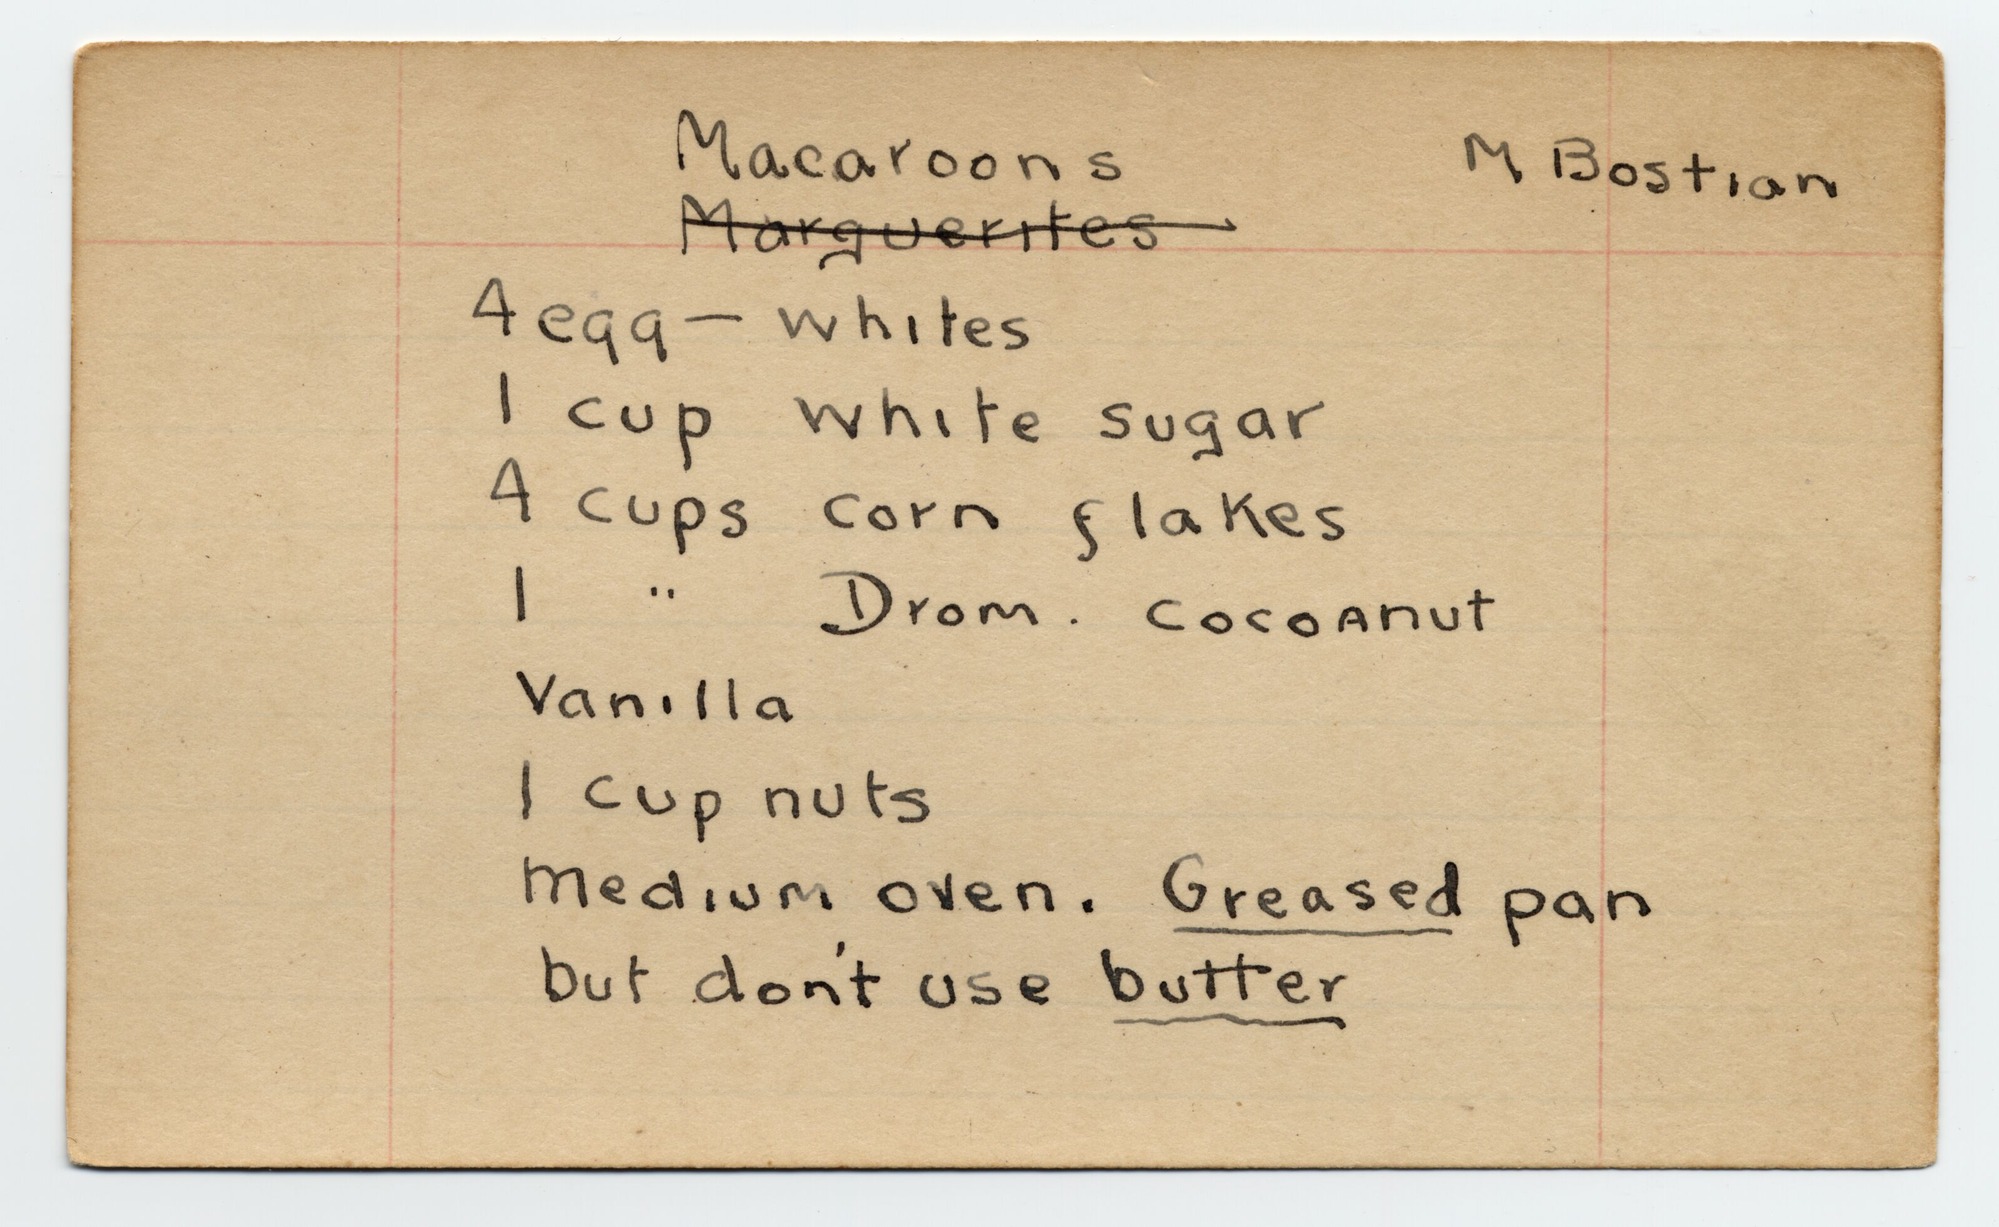 Macaroons M Bostian
Marguerites
4 egg — whites
1 cup white sugar
4 cups corn flakes
1 " Drom. cocoanut
Vanilla
1 cup nuts
Medium oven. Greased pan
but don't use butter